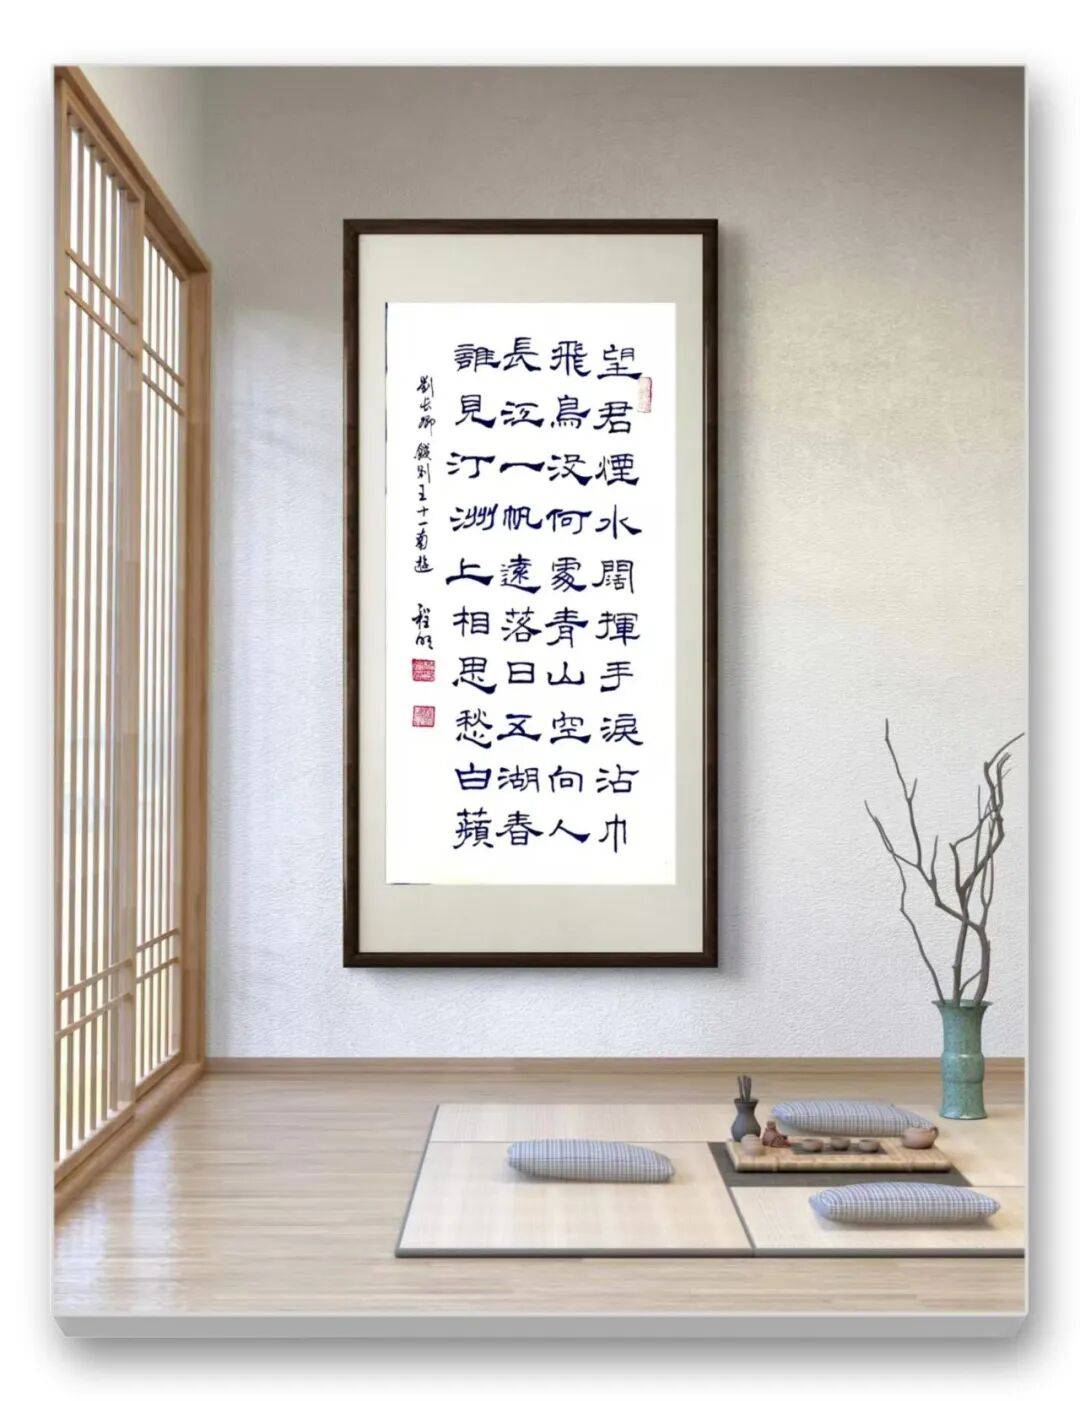 望君煙水闊揮手淚沾巾
飛鳥没何處青山空向人
長江一帆遠落日五湖春
誰見汀洲上相思愁白蘋
劉長卿餞別王十一南遊
程明